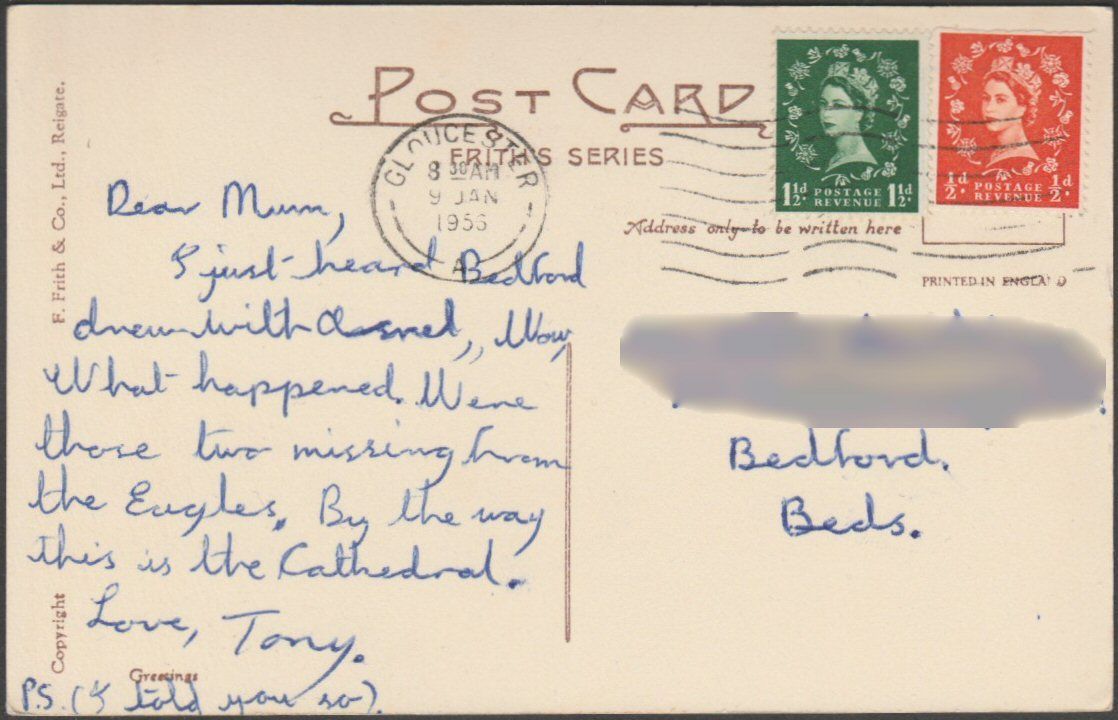 POST CARD
FRITH'S SERIES
GLOUCESTER
8 30 AM
9 JAN
1956
A
1½d POSTAGE REVENUE 1½d
½d POSTAGE REVENUE ½d
Address only to be written here
PRINTED IN ENGLAND
F. Frith & Co., Ltd., Reigate.
Copyright
Dear Mum,
I just heard Bedford
drew with Arsenal,, Wow,
What happened. Were
those two missing from
the Eagles. By the way
this is the Cathedral.
Love, Tony.
Greetings
P.S. (I told you so).
Bedford.
Beds.